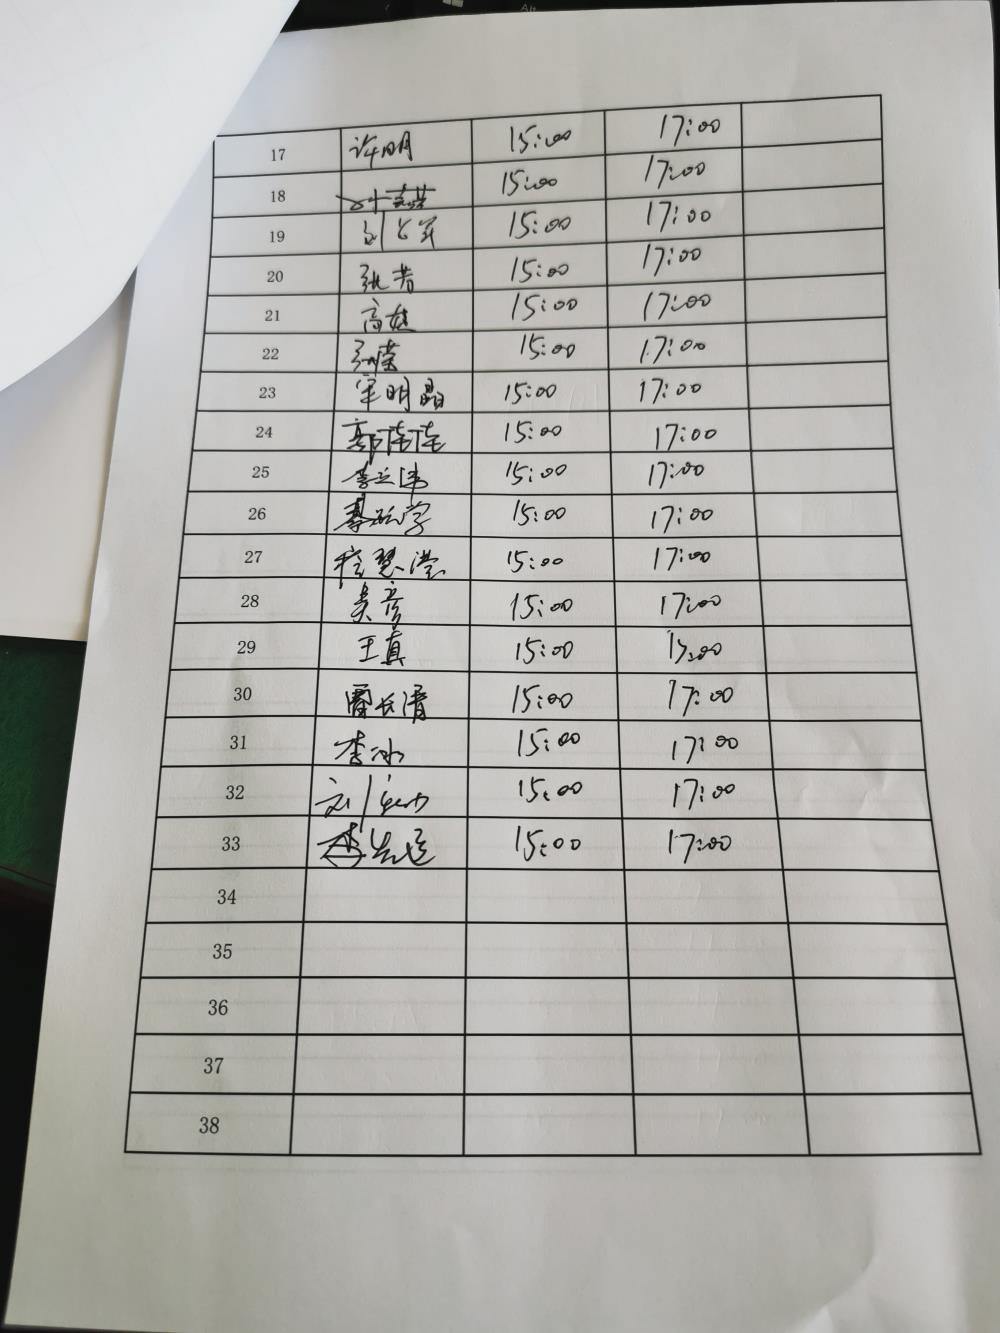 17 许明 15:00 17:00
18 15:00 17:00
19 15:00 17:00
20 张芳 15:00 17:00
21 高娃 15:00 17:00
22 15:00 17:00
23 宋明晶 15:00 17:00
24 郭倩倩 15:00 17:00
25 李立伟 15:00 17:00
26 15:00 17:00
27 程慧滢 15:00 17:00
28 吴彦 15:00 17:00
29 王真 15:00 17:00
30 雷长清 15:00 17:00
31 李冰 15:00 17:00
32 刘 15:00 17:00
33 15:00 17:00
34
35
36
37
38